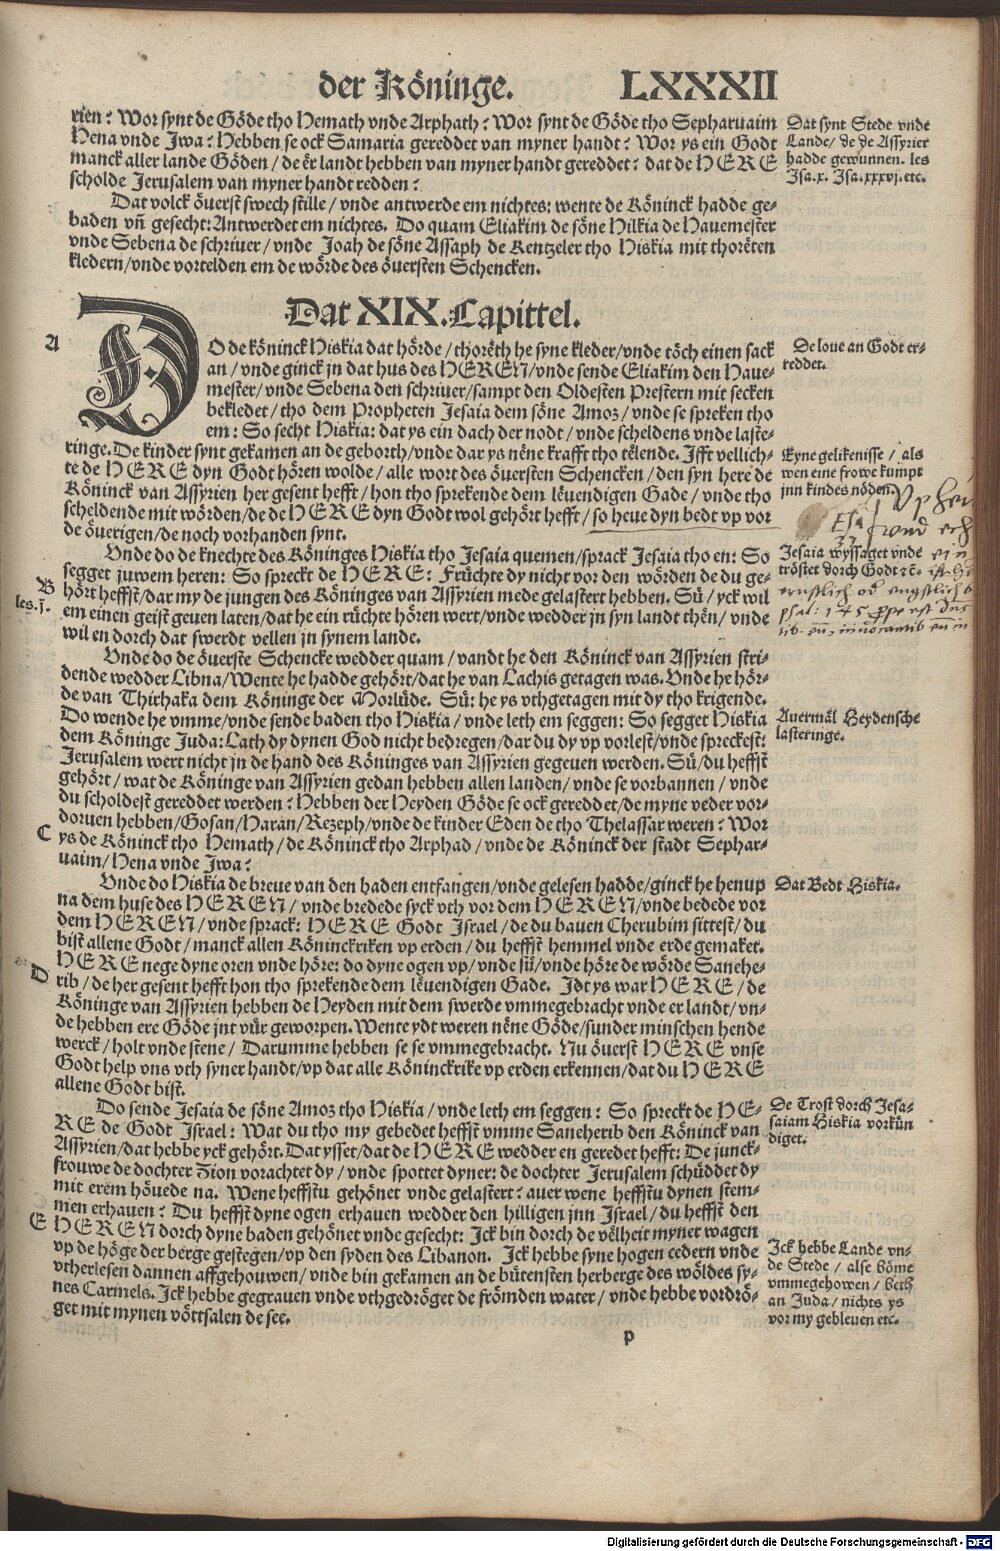 der Köninge. LXXXII
rien? Wor synt de Göde tho Hemath vnde Arphath? Wor synt de Göde tho Sepharuaim
Hena vnde Jwa? Hebben se ock Samaria gereddet van myner handt? Wor ys ein Godt
manck aller lande Göden / de ër landt hebben van myner handt gereddet? dat de HERE
scholde Jerusalem van myner handt redden?
Dat volck öuerst swech stille / vnde antwerde em nichtes: wente de Köninck hadde ge-
baden vñ gesecht: Antwerdet em nichtes. Do quam Eliakim de söne Hilkia de Hauemester
vnde Sebena de schriuer / vnde Joah de söne Assaph de Kentzeler tho Hiskia mit thorëten
kledern/vnde vortelden em de wörde des öuersten Schencken.
Dat synt Stede vnde
Lande/ de de Assyrier
hadde gewunnen. les
Isa.x. Isa.xxxvj.etc.
Dat XIX. Capittel.
A
DO de köninck Hiskia dat hörde / thorëth he syne kleder/vnde töch einen sack
an / vnde ginck jn dat hus des HEREN/vnde sende Eliakim den Haue-
mester/ vnde Sebena den schriuer/sampt den Oldesten Prestern mit secken
bekledet / tho dem Propheten Jesaia dem söne Amoz / vnde se spreken tho
em: So secht Hiskia: dat ys ein dach der nodt / vnde scheldens vnde laste-
ringe. De kinder synt gekamen an de geborth/vnde dar ys nëne krafft tho tëlende. Jfft vellich-
te de HERE dyn Godt hören wolde / alle wort des öuersten Schencken / den syn here de
Köninck van Assyrien her gesent hefft / hon tho sprekende dem lëuendigen Gade / vnde tho
scheldende mit wörden/de de HERE dyn Godt wol gehört hefft / so heue dyn bedt vp vor
de öuerigen/de noch vorhanden synt.
De loue an Godt er-
reddet.
Eyne gelikenisse / als
wen eine frowe kumpt
jnn kindes nöden.
Vnde do de knechte des Köninges Hiskia tho Jesaia quemen/sprack Jesaia tho en: So
segget juwem heren: So spreckt de HERE: Früchte dy nicht vor den wörden de du ge-
hört heffst/dar my de jungen des Köninges van Assyrien mede gelastert hebben. Sü / yck wil
em einen geist geuen laten/dat he ein rüchte hören wert/vnde wedder jn syn landt thën/ vnde
wil en dorch dat swerdt vellen jn synem lande.
B
les.j.
Jesaia wyssaget vnde
tröstet dorch Godt ꝛc.
Vnde do de öuerste Schencke wedder quam / vandt he den Köninck van Assyrien stri-
dende wedder Libna/Wente he hadde gehört/dat he van Lachis getagen was. Vnde he hör-
de van Thirhaka dem Köninge der Morlüde. Sü: he ys vthgetagen mit dy tho krigende.
Do wende he vmme/vnde sende baden tho Hiskia / vnde leth em seggen: So segget Hiskia
dem Köninge Juda: Lath dy dynen God nicht bedregen/dar du dy vp vorlest/vnde spreckest:
Jerusalem wert nicht jn de hand des Köninges van Assyrien gegeuen werden. Sü/du heffst
gehört / wat de Köninge van Assyrien gedan hebben allen landen/ vnde se vorbannen / vnde
du scholdest gereddet werden? Hebben der Heyden Göde se ock gereddet/de myne veder vor-
doruen hebben/Gosan/Haran/Rezeph/vnde de kinder Eden de tho Thelassar weren? Wor
ys de Köninck tho Hemath/de Köninck tho Arphad / vnde de Köninck der stadt Sephar-
uaim/Hena vnde Jwa?
Auermäl Heydensche
lasteringe.
C
Vnde do Hiskia de breue van den baden entfangen/vnde gelesen hadde/ginck he henup
na dem huse des HEREN / vnde bredede syck vth vor dem HEREN/vnde bedede vor
dem HEREN/vnde sprack: HERE Godt Israel / de du bauen Cherubim sittest/ du
bist allene Godt / manck allen Köninckriken vp erden / du heffst hemmel vnde erde gemaket.
HERE nege dyne oren vnde höre: do dyne ogen vp/ vnde sü/vnde höre de wörde Sanehe-
rib / de her gesent hefft hon tho sprekende dem lëuendigen Gade. Jdt ys war HERE / de
Köninge van Assyrien hebben de Heyden mit dem swerde vmmegebracht vnde er landt/ vn-
de hebben ere Göde jnt vür geworpen. Wente ydt weren nëne Göde/sunder minschen hende
werck / holt vnde stene / Darumme hebben se se vmmegebracht. Nu öuerst HERE vnse
Godt help vns vth syner handt/vp dat alle Köninckrike vp erden erkennen/dat du HERE
allene Godt bist.
Dat Bedt Hiskia.
D
Do sende Jesaia de söne Amoz tho Hiskia / vnde leth em seggen: So spreckt de HE-
RE de Godt Israel: Wat du tho my gebedet heffst vmme Sanherib den Köninck van
Assyrien/dat hebbe yck gehört. Dat ysset/dat de HERE wedder en geredet hefft: De junck-
frouwe de dochter Zion vorachtet dy / vnde spottet dyner: de dochter Jerusalem schüddet dy
mit erem höuede na. Wene heffstu gehönet vnde gelastert? auer wene heffstu dynen stem-
men erhauen? Du heffst dyne ogen erhauen wedder den hilligen jnn Israel/ du heffst den
HEREN dorch dyne baden gehönet vnde gesecht: Ick bin dorch de vëlheit myner wagen
vp de höge der bërge gestegen/vp den syden des Libanon. Ick hebbe syne hogen cedern vnde
vtherlesen dannen affgehouwen/ vnde bin gekamen an de bütensten herberge des wöldes sy-
nes Carmels. Ick hebbe gegrauen vnde vthgedröget de frömden water / vnde hebbe vordrö-
get mit mynen vöttsalen de see.
De Trost dorch Jesa-
saiam Hiskia vorkün
diget.
E
Ick hebbe Lande vn-
de Stede / alse böme
vmmegehowen / beth
an Juda / nichts ys
vor my gebleuen etc.
p
Digitalisierung gefördert durch die Deutsche Forschungsgemeinschaft - DFG